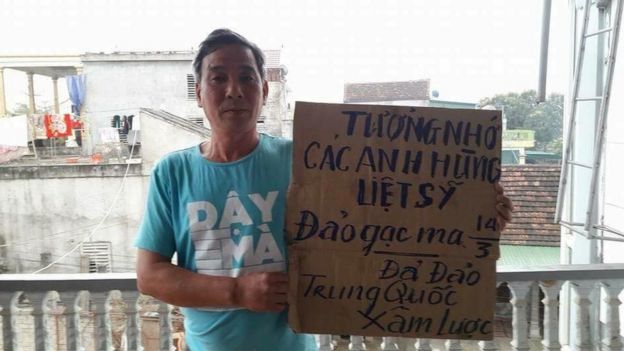 DẬY
MÀ
TƯỞNG NHỚ
CÁC ANH HÙNG
LIỆT SỸ
Đảo gạc ma 14/3
Đả Đảo
Trung Quốc
Xâm Lược